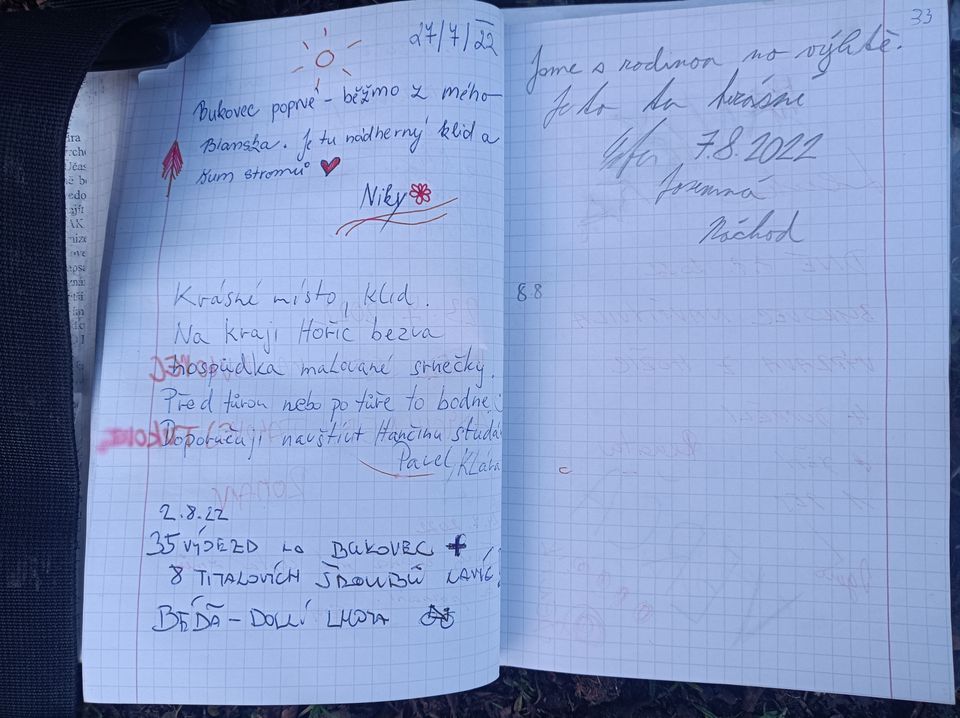 27/7/22
Bukovec poprvé - běžmo z mého
Blanska. Je tu nádherný klid a
šum stromů
Niky
Krásné místo, klid.
Na kraji Hořic bezva
hospůdka malované srnečky.
Před túrou nebo po túře to bodne
Doporučuji navštívit Hančinu studá
Pavel, Klára
2.8.22
35 VÝJEZD NA BUKOVEC +
8 TITALOVÍCH ŠROUBŮ
BÉĎA - DOLNÍ LHOTA
33
Jsme s rodinou na výletě.
Je to tu krásné
7.8.2022
Náchod
8.8